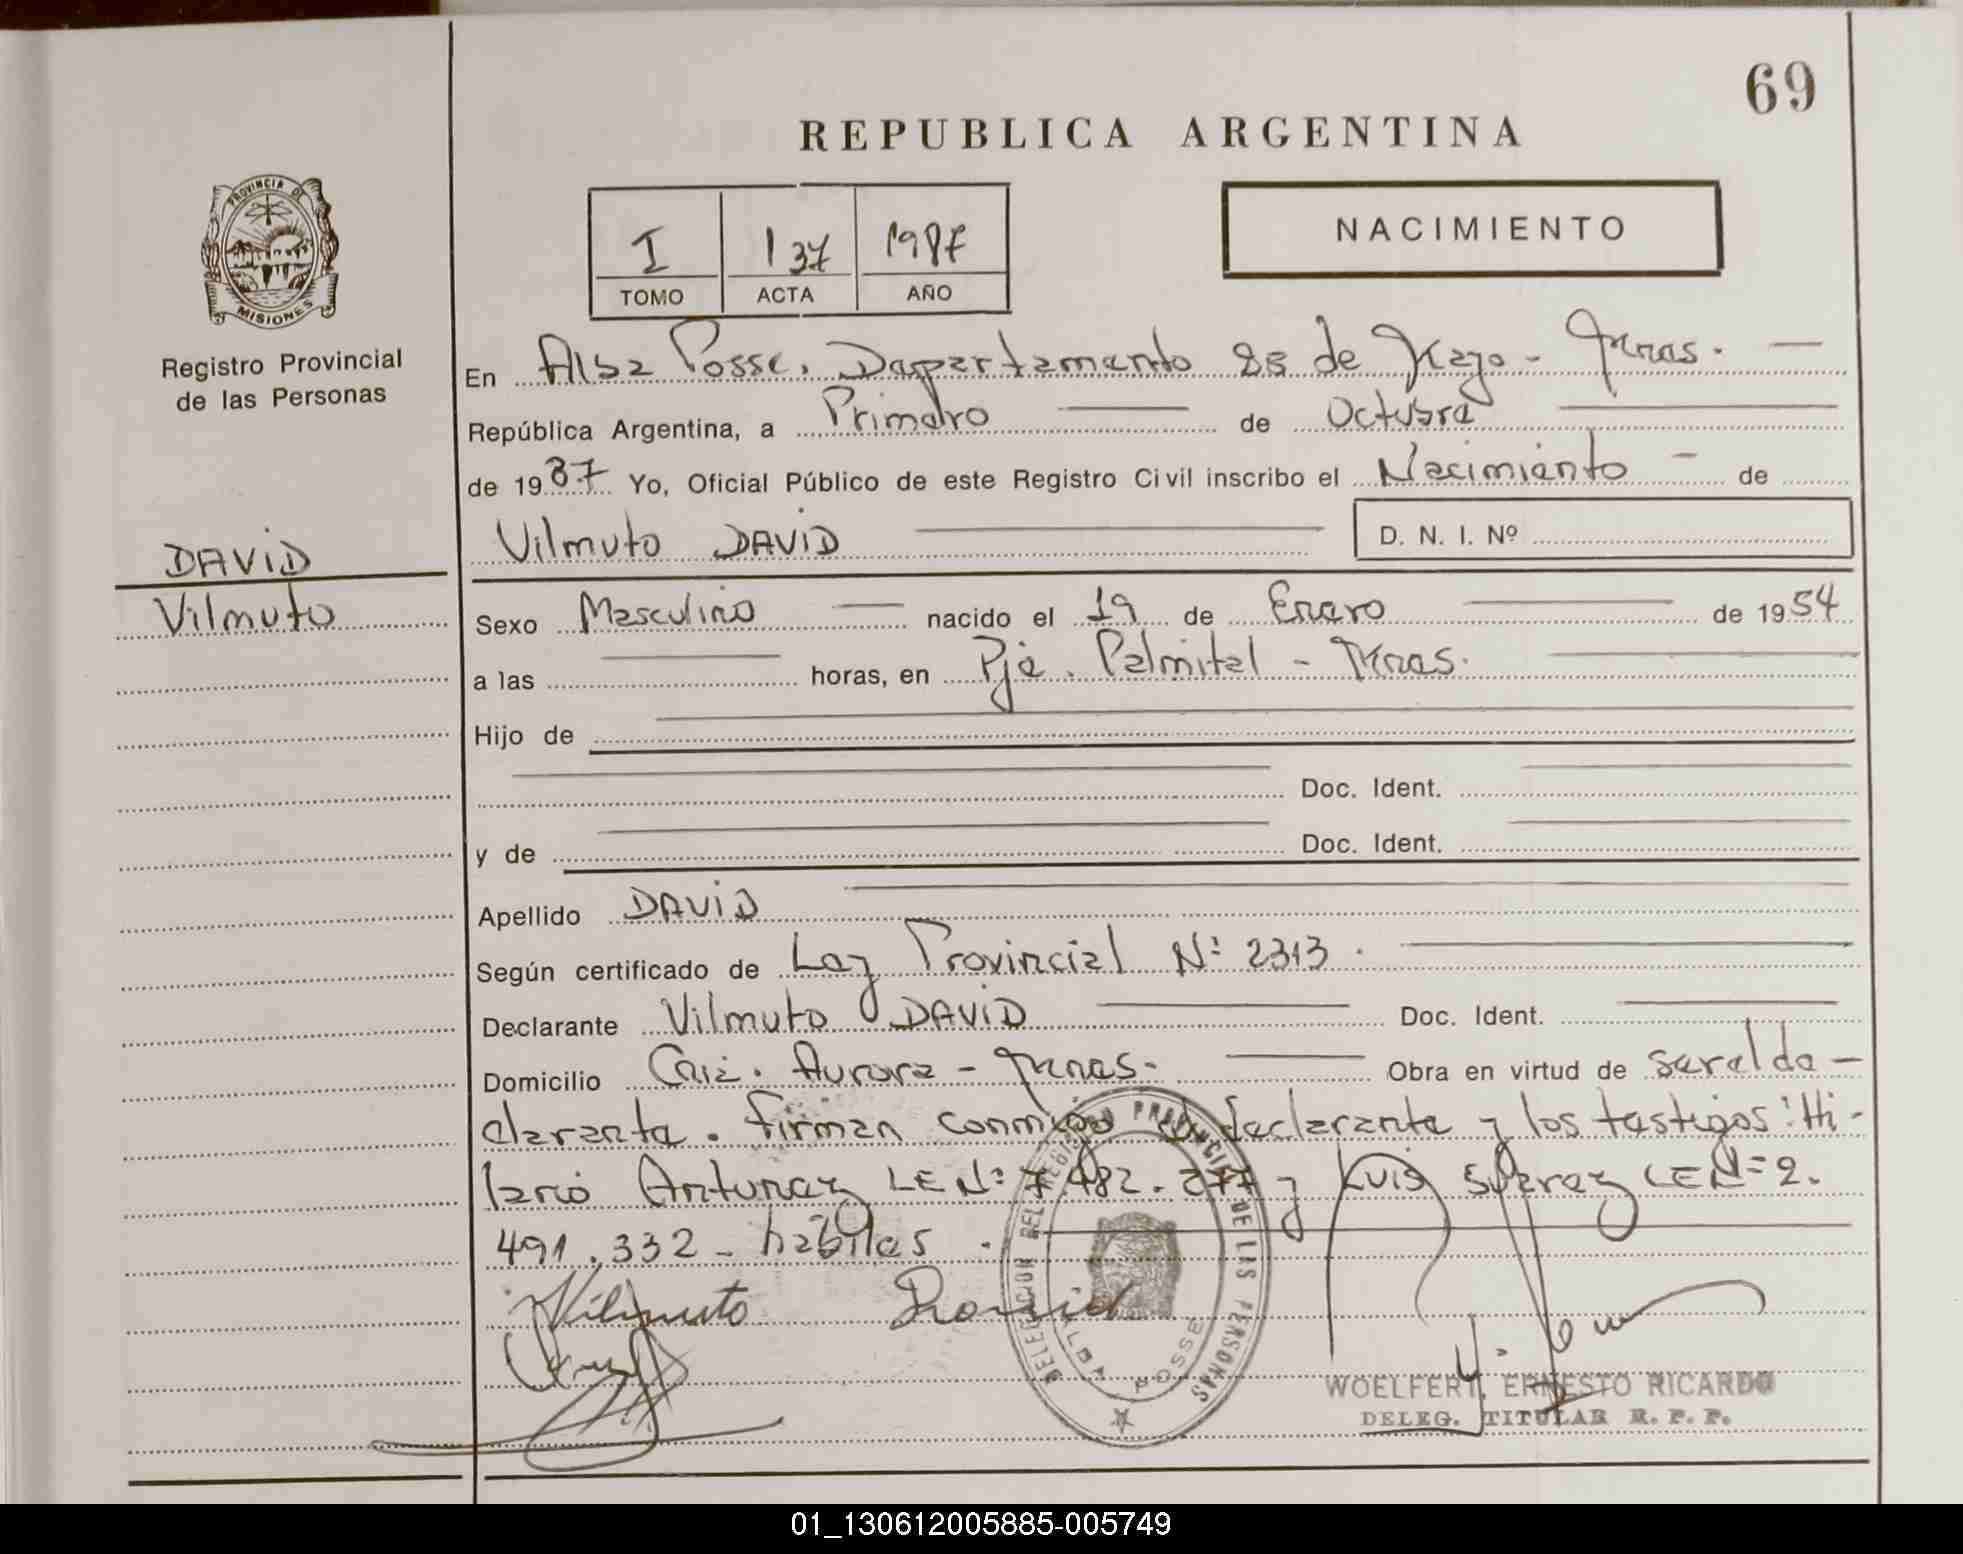 69
REPUBLICA ARGENTINA
PROVINCIA DE
MISIONES
I
137
1987
NACIMIENTO
TOMO
ACTA
AÑO
Registro Provincial
de las Personas
En Alba Posse. Departamento 25 de Mayo - Mnes. —
República Argentina, a Primero — de Octubre —
de 1987 Yo, Oficial Público de este Registro Civil inscribo el Nacimiento - de
Vilmuto DAVID — D. N. I. Nº
DAVID
Vilmuto
Sexo Masculino — nacido el 19 de Enero — de 1954
a las — horas, en Pje. Palmital - Mnes. —
Hijo de —
— Doc. Ident. —
y de — Doc. Ident. —
Apellido DAVID —
Según certificado de Ley Provincial Nº 2313. —
Declarante Vilmuto DAVID — Doc. Ident. —
Domicilio Cnia. Aurora - Mnes- — Obra en virtud de ser el de-
clarante. Firman conmigo el declarante y los testigos: Hi-
lario Antunez LE Nº 7.482.277 y Luis Suarez LE Nº 2.
491.332 - hábiles. —
Vilmuto David
DELEGACION DEL REGISTRO PROVINCIAL DE LAS PERSONAS
ALBA POSSE
WOELFERT, ERNESTO RICARDO
DELEG. TITULAR R. P. P.
01_130612005885-005749